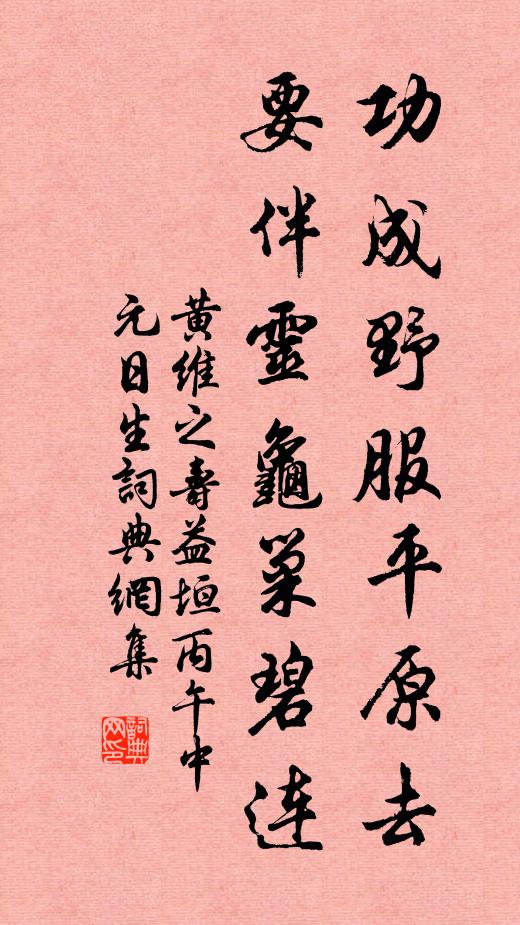 功成野服平原去
要伴靈龜巢碧連
黄維之壽益垣丙午中
元日生詞典網集
詞典網印